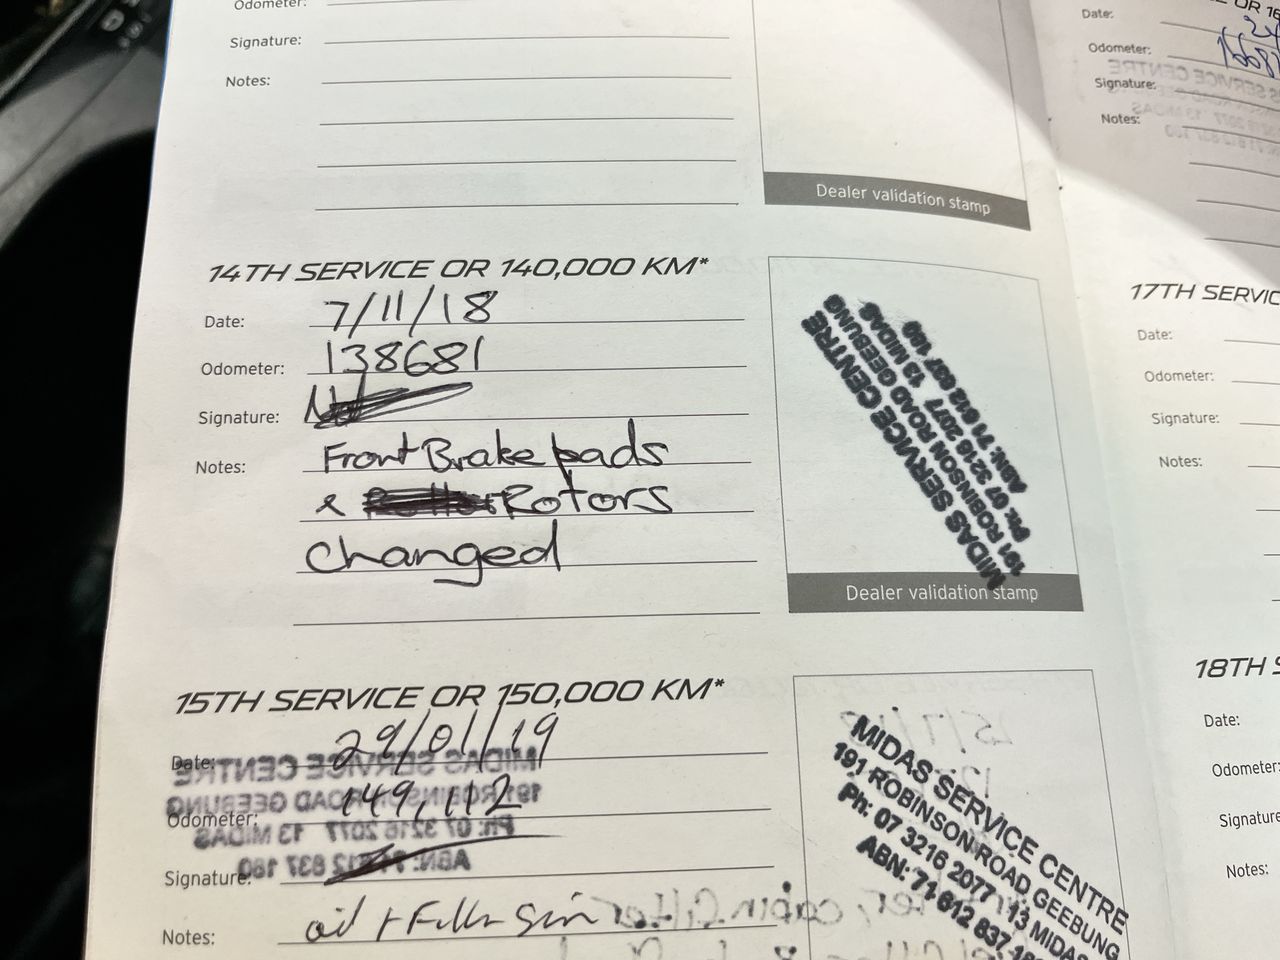 Odometer:
Signature:
Notes:
Dealer validation stamp
14TH SERVICE OR 140,000 KM*
Date: 7/11/18
Odometer: 138681
Signature:
Notes: Front Brake pads
& Rotors
changed
MIDAS SERVICE CENTRE
191 ROBINSON ROAD GEEBUNG
Ph: 07 3216 2077 13 MIDAS
ABN: 71 612 637 180
Dealer validation stamp
15TH SERVICE OR 150,000 KM*
Date: 29/01/19
Odometer: 149,112
Signature:
Notes: oil + Filter
MIDAS SERVICE CENTRE
191 ROBINSON ROAD GEEBUNG
Ph: 07 3216 2077 13 MIDAS
ABN: 71 612 637
OR 16
Date:
Odometer:
Signature:
Notes:
17TH SERVIC
Date:
Odometer:
Signature:
Notes:
18TH S
Date:
Odometer:
Signature
Notes: